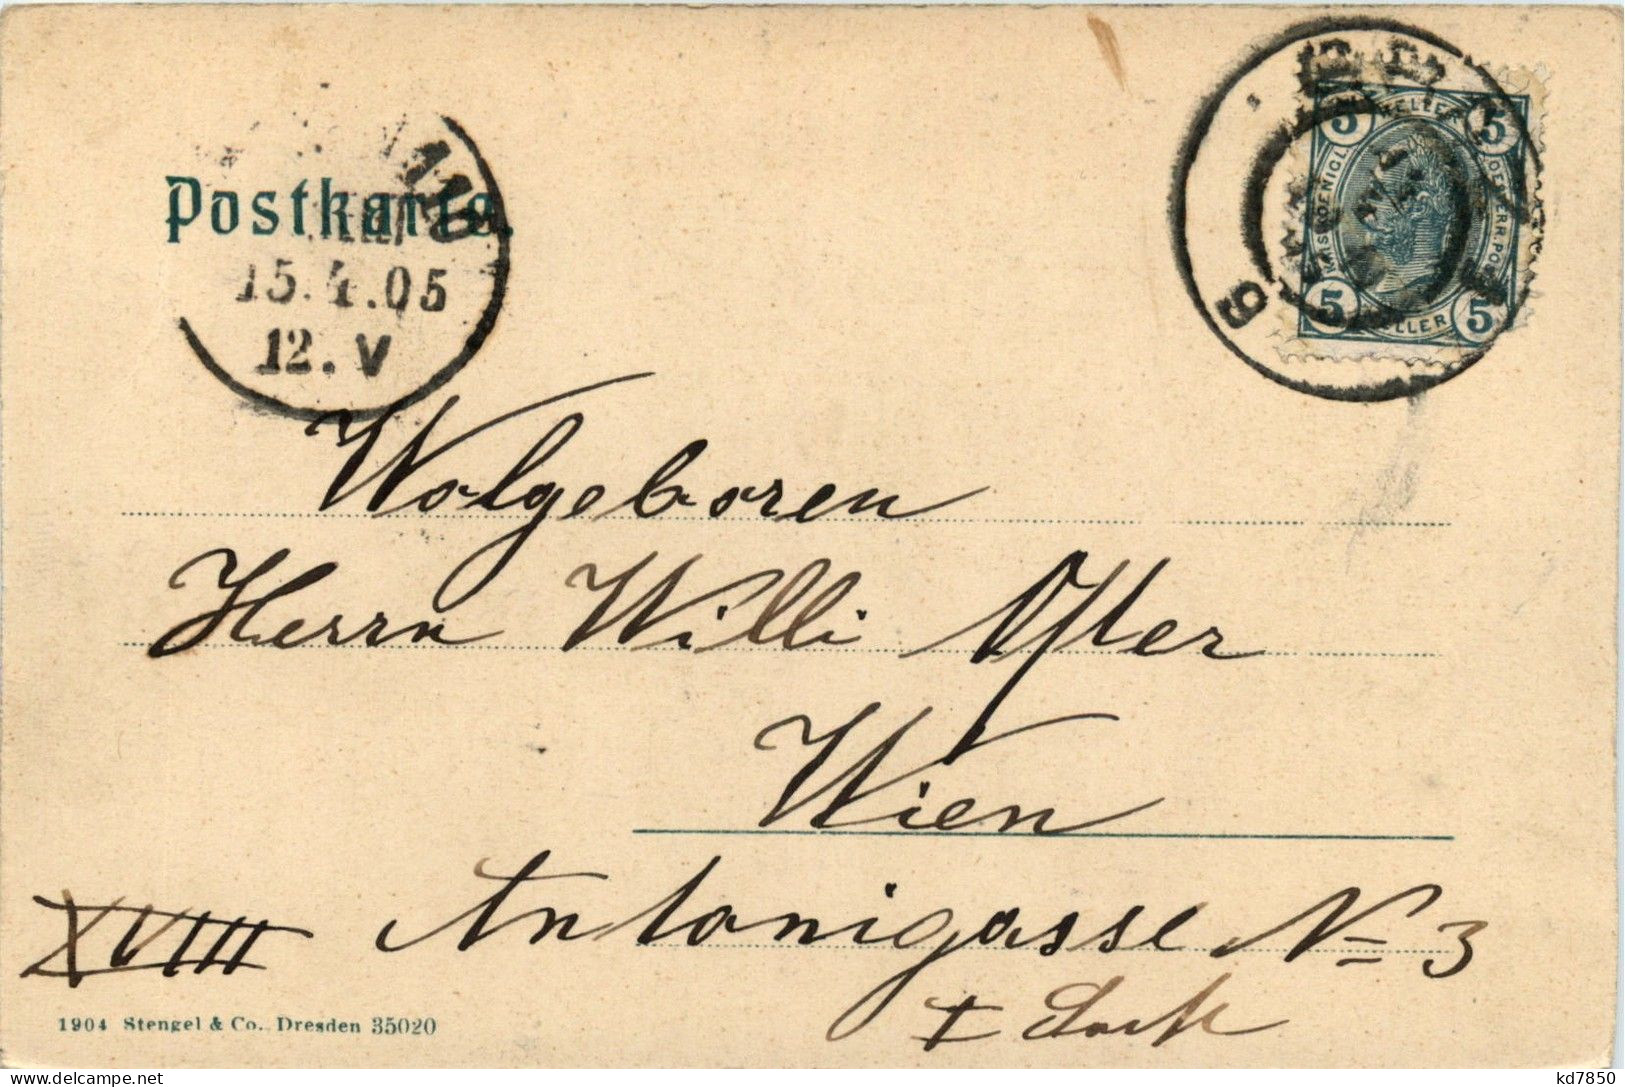 Postkarte.
15.4.05
12.V
5 HELLER 5
KAIS. KOENIGL. OESTERR. POST
5 HELLER 5
Wolgeboren
Herrn Willi
Wien
XVIII Antonigasse No 3
I
1904 Stengel & Co., Dresden 35020
delcampe.net
kd7850